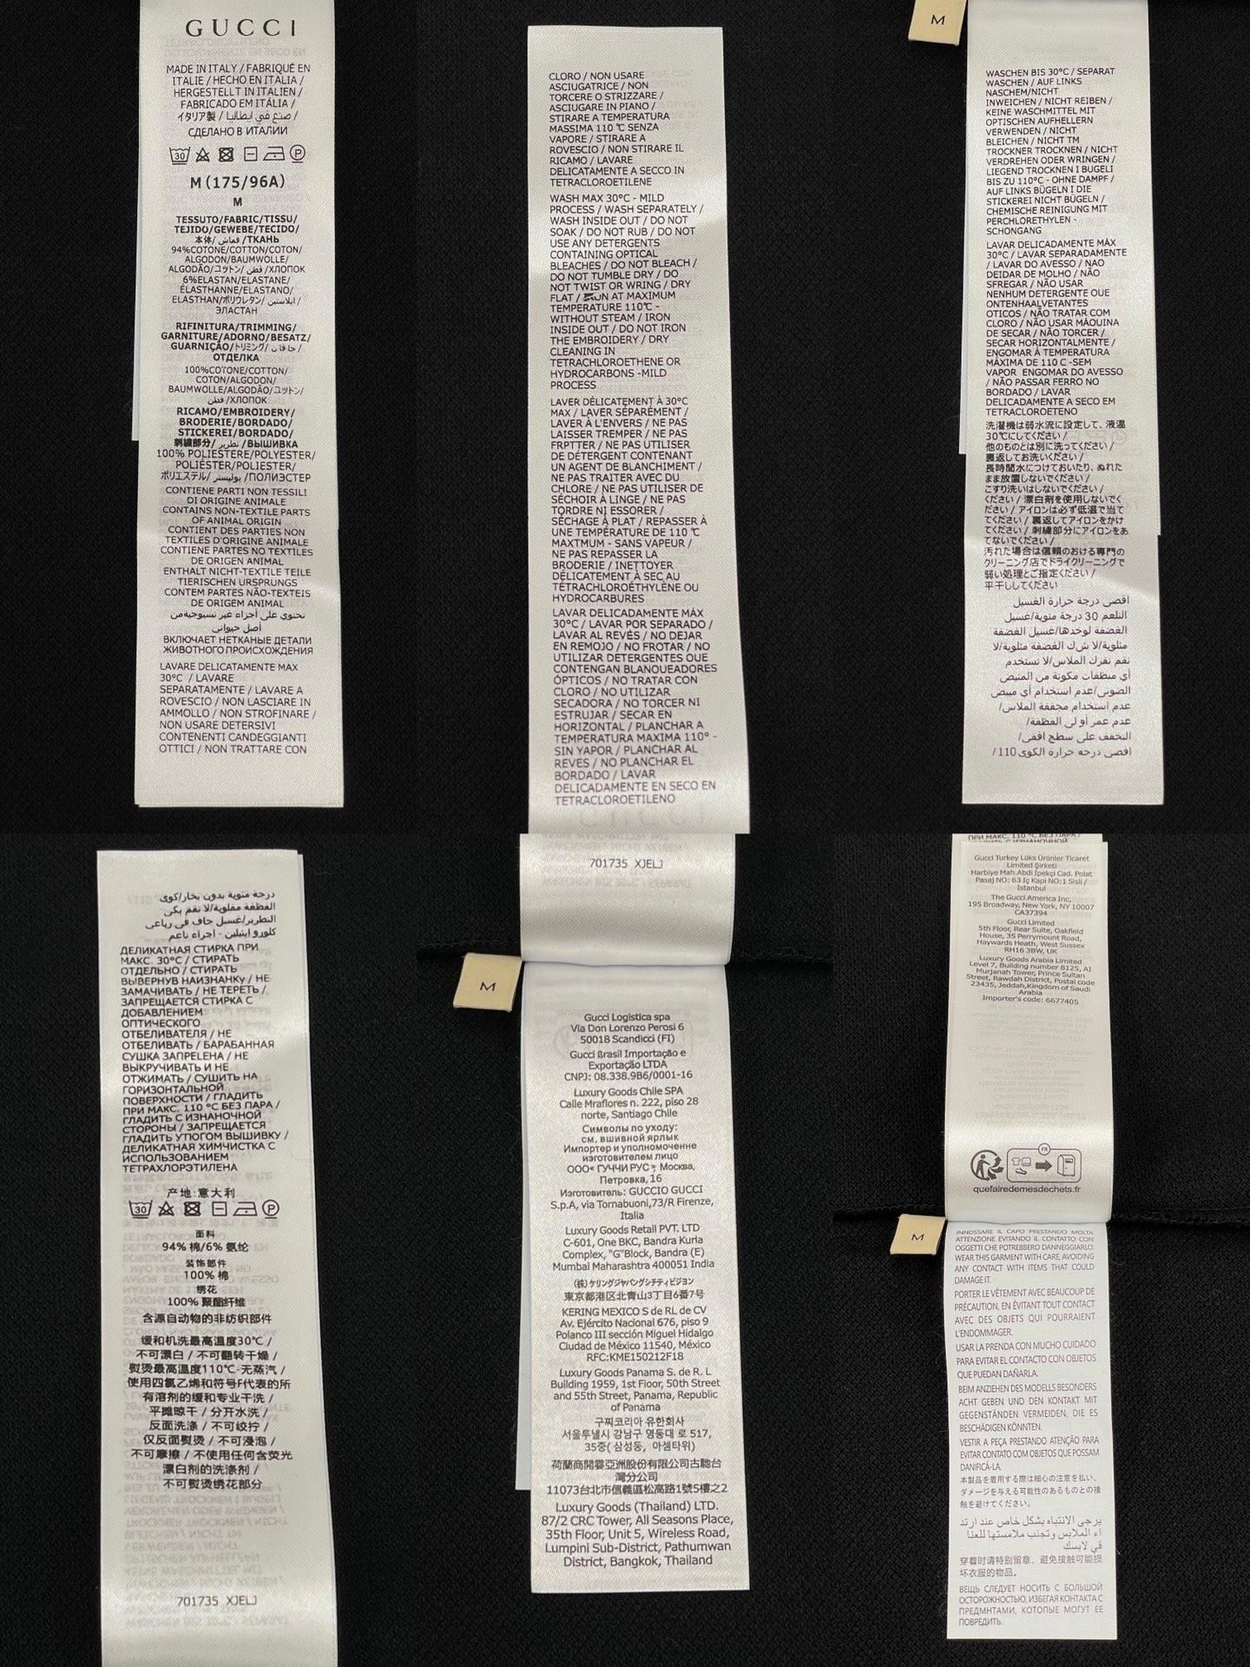 GUCCI
MADE IN ITALY / FABRIQUÉ EN
ITALIE / HECHO EN ITALIA /
HERGESTELLT IN ITALIEN /
FABRICADO EM ITÁLIA /
イタリア製 / صنع في ايطاليا /
СДЕЛАНО В ИТАЛИИ
30 P
M (175/96A)
M
TESSUTO/FABRIC/TISSU/
TEJIDO/GEWEBE/TECIDO/
本体/ قماش /ТКАНЬ
94%COTONE/COTTON/COTON/
ALGODON/BAUMWOLLE/
ALGODÃO/コットン/ قطن /ХЛОПОК
6%ELASTAN/ELASTANE/
ÉLASTHANNE/ELASTANO/
ELASTHAN/ポリウレタン/ ايلاستين /
ЭЛАСТАН
RIFINITURA/TRIMMING/
GARNITURE/ADORNO/BESATZ/
GUARNIÇÃO/トリミング/ حافات /
ОТДЕЛКА
100%COTONE/COTTON/
COTON/ALGODON/
BAUMWOLLE/ALGODÃO/コットン/
قطن /ХЛОПОК
RICAMO/EMBROIDERY/
BRODERIE/BORDADO/
STICKEREI/BORDADO/
刺繍部分/ تطريز /ВЫШИВКА
100% POLIESTERE/POLYESTER/
POLIÉSTER/POLIESTER/
ポリエステル/ بوليستر /ПОЛИЭСТЕР
CONTIENE PARTI NON TESSILI
DI ORIGINE ANIMALE
CONTAINS NON-TEXTILE PARTS
OF ANIMAL ORIGIN
CONTIENT DES PARTIES NON
TEXTILES D'ORIGINE ANIMALE
CONTIENE PARTES NO TEXTILES
DE ORIGEN ANIMAL
ENTHALT NICHT-TEXTILE TEILE
TIERISCHEN URSPRUNGS
CONTEM PARTES NÃO-TEXTEIS
DE ORIGEM ANIMAL
تحتوي على أجزاء غير نسيوجيةمن
أصل حيواني
ВКЛЮЧАЕТ НЕТКАНЫЕ ДЕТАЛИ
ЖИВОТНОГО ПРОИСХОЖДЕНИЯ
LAVARE DELICATAMENTE MAX
30°C / LAVARE
SEPARATAMENTE / LAVARE A
ROVESCIO / NON LASCIARE IN
AMMOLLO / NON STROFINARE /
NON USARE DETERSIVI
CONTENENTI CANDEGGIANTI
OTTICI / NON TRATTARE CON
CLORO / NON USARE
ASCIUGATRICE / NON
TORCERE O STRIZZARE /
ASCIUGARE IN PIANO /
STIRARE A TEMPERATURA
MASSIMA 110 ℃ SENZA
VAPORE / STIRARE A
ROVESCIO / NON STIRARE IL
RICAMO / LAVARE
DELICATAMENTE A SECCO IN
TETRACLOROETILENE
WASH MAX 30°C - MILD
PROCESS / WASH SEPARATELY /
WASH INSIDE OUT / DO NOT
SOAK / DO NOT RUB / DO NOT
USE ANY DETERGENTS
CONTAINING OPTICAL
BLEACHES / DO NOT BLEACH /
DO NOT TUMBLE DRY / DO
NOT TWIST OR WRING / DRY
FLAT / AT MAXIMUM
TEMPERATURE 110℃ -
WITHOUT STEAM / IRON
INSIDE OUT / DO NOT IRON
THE EMBROIDERY / DRY
CLEANING IN
TETRACHLOROETHENE OR
HYDROCARBONS -MILD
PROCESS
LAVER DÉLICATEMENT À 30°C
MAX / LAVER SÉPARÉMENT /
LAVER À L'ENVERS / NE PAS
LAISSER TREMPER / NE PAS
FRPTTER / NE PAS UTILISER
DE DÉTERGENT CONTENANT
UN AGENT DE BLANCHIMENT /
NE PAS TRAITER AVEC DU
CHLORE / NE PAS UTILISER DE
SÉCHOIR À LINGE / NE PAS
TORDRE NI ESSORER /
SÉCHAGE À PLAT / REPASSER À
UNE TEMPÉRATURE DE 110 ℃
MAXTMUM - SANS VAPEUR /
NE PAS REPASSER LA
BRODERIE / INETTOYER
DÉLICATEMENT À SEC AU
TÉTRACHLOROÉTHYLÈNE OU
HYDROCARBURES
LAVAR DELICADAMENTE MÁX
30°C / LAVAR POR SEPARADO /
LAVAR AL REVÉS / NO DEJAR
EN REMOJO / NO FROTAR / NO
UTILIZAR DETERGENTES OUE
CONTENGAN BLANQUEADORES
ÓPTICOS / NO TRATAR CON
CLORO / NO UTILIZAR
SECADORA / NO TORCER NI
ESTRUJAR / SECAR EN
HORIZONTAL / PLANCHAR A
TEMPERATURA MAXIMA 110° -
SIN VAPOR / PLANCHAR AL
REVES / NO PLANCHAR EL
BORDADO / LAVAR
DELICADAMENTE EN SECO EN
TETRACLOROETILENO
M
WASCHEN BIS 30°C / SEPARAT
WASCHEN / AUF LINKS
NASCHEM/NICHT
INWEICHEN / NICHT REIBEN /
KEINE WASCHMITTEL MIT
OPTISCHEN AUFHELLERN
VERWENDEN / NICHT
BLEICHEN / NICHT TM
TROCKNER TROCKNEN / NICHT
VERDREHEN ODER WRINGEN /
LIEGEND TROCKNEN I BUGELI
BIS ZU 110°C - OHNE DAMPF /
AUF LINKS BÜGELN I DIE
STICKEREI NICHT BÜGELN /
CHEMISCHE REINIGUNG MIT
PERCHLORETHYLEN -
SCHONGANG
LAVAR DELICADAMENTE MÁX
30°C / LAVAR SEPARADAMENTE
/ LAVAR DO AVESSO / NAO
DEIDAR DE MOLHO / NÃO
SFREGAR / NÃO USAR
NENHUM DETERGENTE OUE
ONTENHAALVETANTES
OTICOS / NÃO TRATAR COM
CLORO / NÃO USAR MÁQUINA
DE SECAR / NÃO TORCER /
SECAR HORIZONTALMENTE /
ENGOMAR À TEMPERATURA
MÁXIMA DE 110 C -SEM
VAPOR ENGOMAR DO AVESSO
/ NÃO PASSAR FERRO NO
BORDADO / LAVAR
DELICADAMENTE A SECO EM
TETRACLOROETENO
洗濯機は弱水流に設定して、液温
30℃にしてください /
他のものとは別に洗ってください /
裏返してお洗いください /
長時間水につけておいたり、ぬれた
まま放置しないでください /
こすり洗いはしないでください /
ください / 漂白剤を使用しないでく
ださい / アイロンは必ず低温で当て
てください / 裏返してアイロンをかけ
てください / 刺繍部分にアイロンをあ
てないでください /
汚れた場合は信頼のおける専門の
クリーニング店でドライクリーニングで
弱い処理とご指定ください /
平干ししてください
اقصى درجة حرارة الغسيل
النلعم 30 درجة مئوية/غسيل
القضفة لوحدها/غسيل القضفة
مثلوبة/لا ش ك القضفة مثلوبة/لا
نقم نفرك الملاس/لا تستخدم
أي منظفات مكونة من المنيض
الضوني/عدم استخدام أي مبيض
عدم استخدام مجففة الملاس/
عدم عمر أو لى القطفة/
التخفف على سطح افقى/
اقصى درجه حرارة الكوى 110/
درجة مئوية بدون بخار/كوى
القطعة مقلوبة/لا نقم بكي
التطرير/غسيل جاف في رباعي
كلورو إيثيلين - أجراء ناعم
ДЕЛИКАТНАЯ СТИРКА ПРИ
МАКС. 30°C / СТИРАТЬ
ОТДЕЛЬНО / СТИРАТЬ
ВЫВЕРНУВ НАИЗНАНКУ / НЕ
ЗАМАЧИВАТЬ / НЕ ТЕРЕТЬ /
ЗАПРЕЩАЕТСЯ СТИРКА С
ДОБАВЛЕНИЕМ
ОПТИЧЕСКОГО
ОТБЕЛИВАТЕЛЯ / НЕ
ОТБЕЛИВАТЬ / БАРАБАННАЯ
СУШКА ЗАПРЕLЕНА / НЕ
ВЫКРУЧИВАТЬ И НЕ
ОТЖИМАТЬ / СУШИТЬ НА
ГОРИЗОНТАЛЬНОЙ
ПОВЕРХНОСТИ / ГЛАДИТЬ
ПРИ МАКС. 110 °C БЕЗ ПАРА /
ГЛАДИТЬ С ИЗНАНОЧНОЙ
СТОРОНЫ / ЗАПРЕЩАЕТСЯ
ГЛАДИТЬ УТЮГОМ ВЫШИВКУ /
ДЕЛИКАТНАЯ ХИМЧИСТКА С
ИСПОЛЬЗОВАНИЕМ
ТЕТРАХЛОРЭТИЛЕНА
产地:意大利
30 P
面料
94% 棉/6% 氨纶
装饰部件
100% 棉
绣花
100% 聚酯纤维
含源自动物的非纺织部件
缓和机洗最高温度30℃ /
不可漂白 / 不可翻转干燥 /
熨烫最高温度110℃-无蒸汽 /
使用四氯乙烯和符号F代表的所
有溶剂的缓和专业干洗 /
平摊晾干 / 分开水洗 /
反面洗涤 / 不可绞拧 /
仅反面熨烫 / 不可浸泡 /
不可摩擦 / 不使用任何含荧光
漂白剂的洗涤剂 /
不可熨烫绣花部分
701735 XJELJ
701735 XJELJ
M
Gucci Logistica spa
Via Don Lorenzo Perosi 6
50018 Scandicci (FI)
Gucci Brasil Importação e
Exportação LTDA
CNPJ: 08.338.9B6/0001-16
Luxury Goods Chile SPA
Calle Mraflores n. 222, piso 28
norte, Santiago Chile
Символы по уходу:
см. вшивной ярлык
Импортер и уполномоченне
изготовителем лицо
ООО« ГУЧЧИ РУС » Москва,
Петровка, 16
Изготовитель: GUCCIO GUCCI
S.p.A, via Tornabuoni,73/R Firenze,
Italia
Luxury Goods Retail PVT. LTD
C-601, One BKC, Bandra Kurla
Complex, "G"Block, Bandra (E)
Mumbai Maharashtra 400051 India
(株) ケリングジャパングシチティビジョン
東京都港区北青山3丁目6番7号
KERING MEXICO S de RL de CV
Av. Ejército Nacional 676, piso 9
Polanco III sección Miguel Hidalgo
Ciudad de México 11540, México
RFC:KME150212F18
Luxury Goods Panama S. de R. L
Building 1959, 1st Floor, 50th Street
and 55th Street, Panama, Republic
of Panama
구찌코리아 유한회사
서울투낼시 강남구 영동대 로 517,
35중( 삼성동, 아셈타워)
荷蘭商開雲亞洲股份有限公司古馳台
灣分公司
11073台北市信義區松高路1號5樓之2
Luxury Goods (Thailand) LTD.
87/2 CRC Tower, All Seasons Place,
35th Floor, Unit 5, Wireless Road,
Lumpini Sub-District, Pathumwan
District, Bangkok, Thailand
ПРИ МАКС. 110 °C БЕЗ ПАРА /
Gucci Turkey Lüks Ürünler Ticaret
Limited Şirketi
Harbiye Mah.Abdi İpekçi Cad. Polat
Pasaj NO: 63 İç Kapi NO:1 Sisli /
Istanbul
The Gucci America Inc,
195 Broadway, New York, NY 10007
CA37394
Gucci Limited
5th Floor, Rear Suite, Oakfield
House, 35 Perrymount Road,
Haywards Heath, West Sussex
RH16 3BW, UK
Luxury Goods Arabia Limited
Level 7, Building number 8125, Al
Murjanah Tower, Prince Sultan
Street, Rawdah District, Postal code
23435, Jeddah,Kingdom of Saudi
Arabia
Importer's code: 6677405
FR
quefairedemesdechets.fr
M
INNOSSARE IL CAPO PRESTANDO MOLTA
ATTENZIONE EVITANDO IL CONTATTO CON
OGGETTI CHE POTREBBERO DANNEGGIARLO.
WEAR THIS GARMENT WITH CARE, AVOIDING
ANY CONTACT WITH ITEMS THAT COULD
DAMAGE IT.
PORTER LE VÊTEMENT AVEC BEAUCOUP DE
PRÉCAUTION, EN ÉVITANT TOUT CONTACT
AVEC DES OBJETS QUI POURRAIENT
L'ENDOMMAGER.
USAR LA PRENDA CON MUCHO CUIDADO
PARA EVITAR EL CONTACTO CON OBJETOS
QUE PUEDAN DAÑARLA.
BEIM ANZIEHEN DES MODELLS BESONDERS
ACHT GEBEN UND DEN KONTAKT MIT
GEGENSTÄNDEN VERMEIDEN, DIE ES
BESCHÄDIGEN KÖNNTEN.
VESTIR A PEÇA PRESTANDO ATENÇÃO PARA
EVITAR CONTATO COM OBJETOS QUE POSSAM
DANIFICÁ-LA.
本製品を着用する際は細心の注意を払い、
ダメージを与える可能性のあるものとの接
触を避けてください。
يرجى الانتباه بشكل خاص عند ارتد
اء الملابس وتجنب ملامستها للعنا
في لابسك
穿着时请特别留意，避免接触可能损
坏衣服的物品。
ВЕЩЬ СЛЕДУЕТ НОСИТЬ С БОЛЬШОЙ
ОСТОРОЖНОСТЬЮ, ИЗБЕГАЯ КОНТАКТА С
ПРЕДМНТАМИ, КОТОПЫЕ МОГУТ ЕЕ
ПОВРЕДИТЬ.